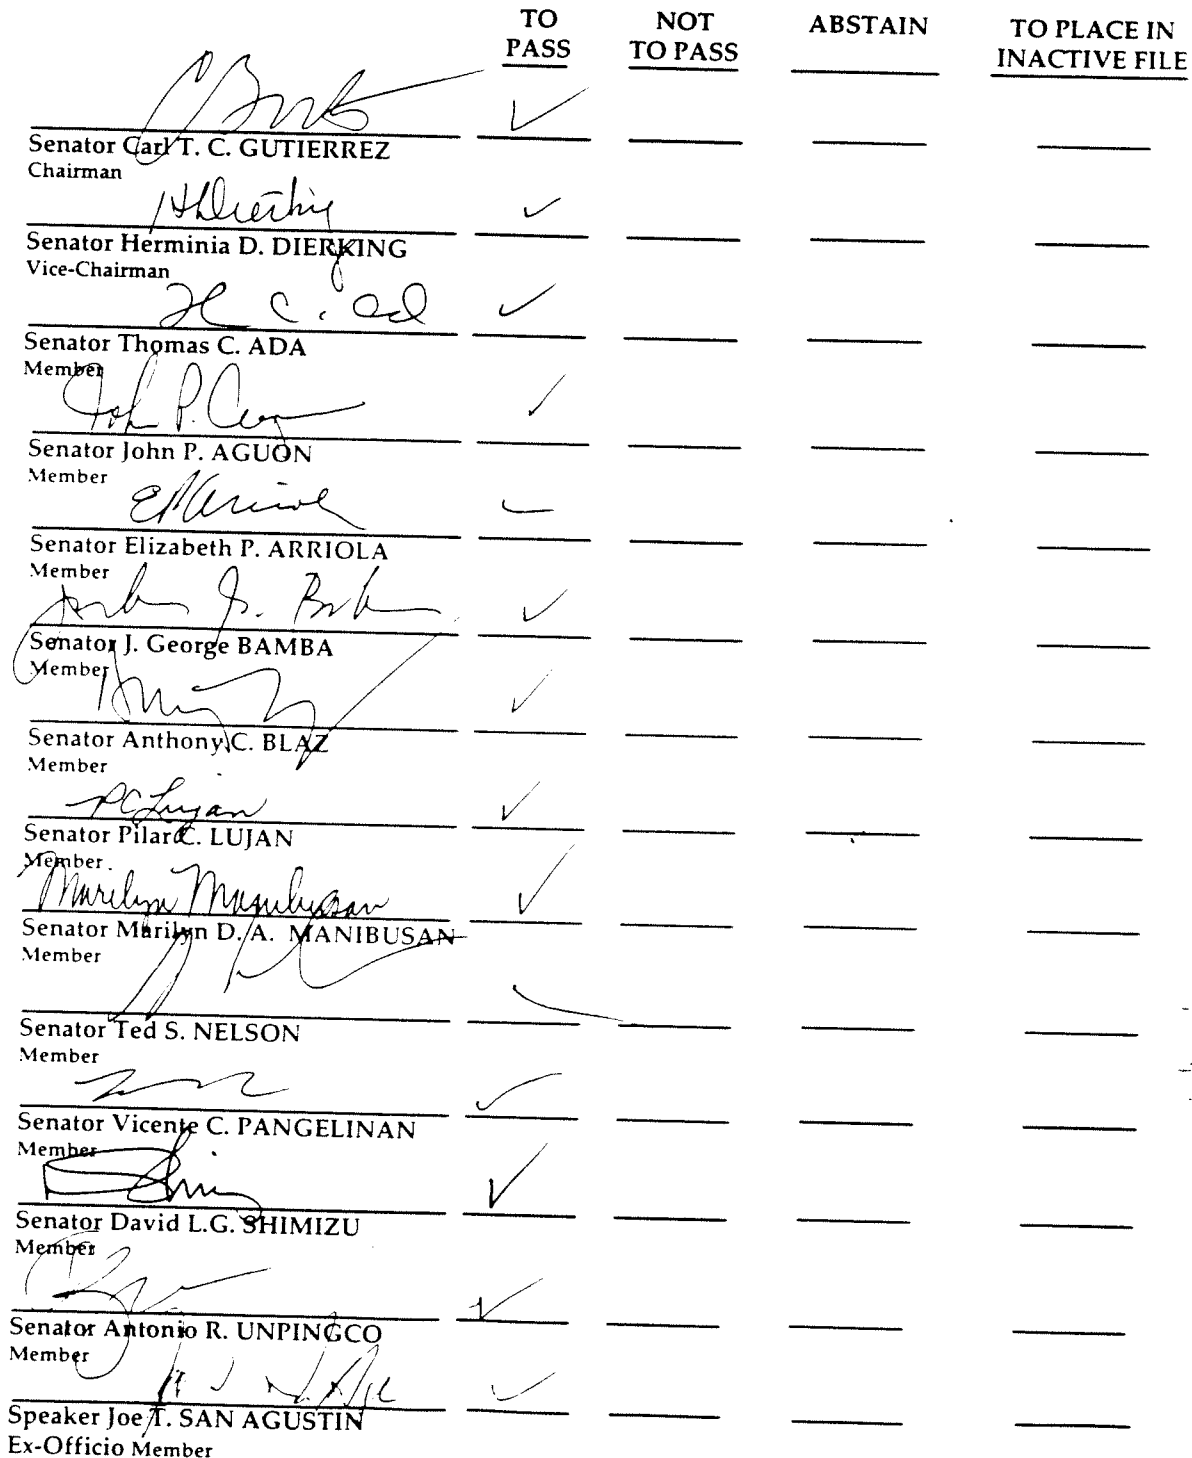 TO PASS NOT TO PASS ABSTAIN TO PLACE IN INACTIVE FILE
Senator Carl T. C. GUTIERREZ
Chairman
Senator Herminia D. DIERKING
Vice-Chairman
Senator Thomas C. ADA
Member
John P.
Senator John P. AGUON
Member
Senator Elizabeth P. ARRIOLA
Member
Senator J. George BAMBA
Member
Senator Anthony C. BLAZ
Member
PC Lujan
Senator Pilar C. LUJAN
Member
Marilyn Manibusan
Senator Marilyn D. A. MANIBUSAN
Member
Senator Ted S. NELSON
Member
Senator Vicente C. PANGELINAN
Member
Senator David L.G. SHIMIZU
Member
Senator Antonio R. UNPINGCO
Member
Speaker Joe T. SAN AGUSTIN
Ex-Officio Member